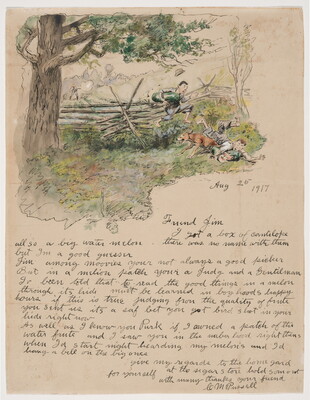 Aug 25 1917
Friend Jim
I got a box of cantelope
all so a big water melon there was no name with them
but I'm a good guesser
Jim among movies your not always a good picker
But in a melon patch your a Judg and a Gentilman
Iv been told that to read the good things in a melon
through its hide must be learned in boy hoods happy
hours if this is true judging from the quality of frute
you sent us its a saf bet you got bird shot in your
hide right now
As well as I know you Park if I owned a patch of this
water frute and I saw you in the naborhood right then
when I'd start night hearding my melons and I'd
hang a bell on the big ones
give my regards to the home gard
for yourself at the sugar stores hold you out
with many thanks your friend
C M Russell